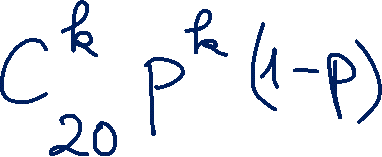 C_{20}^{k} p^{k} (1-p)